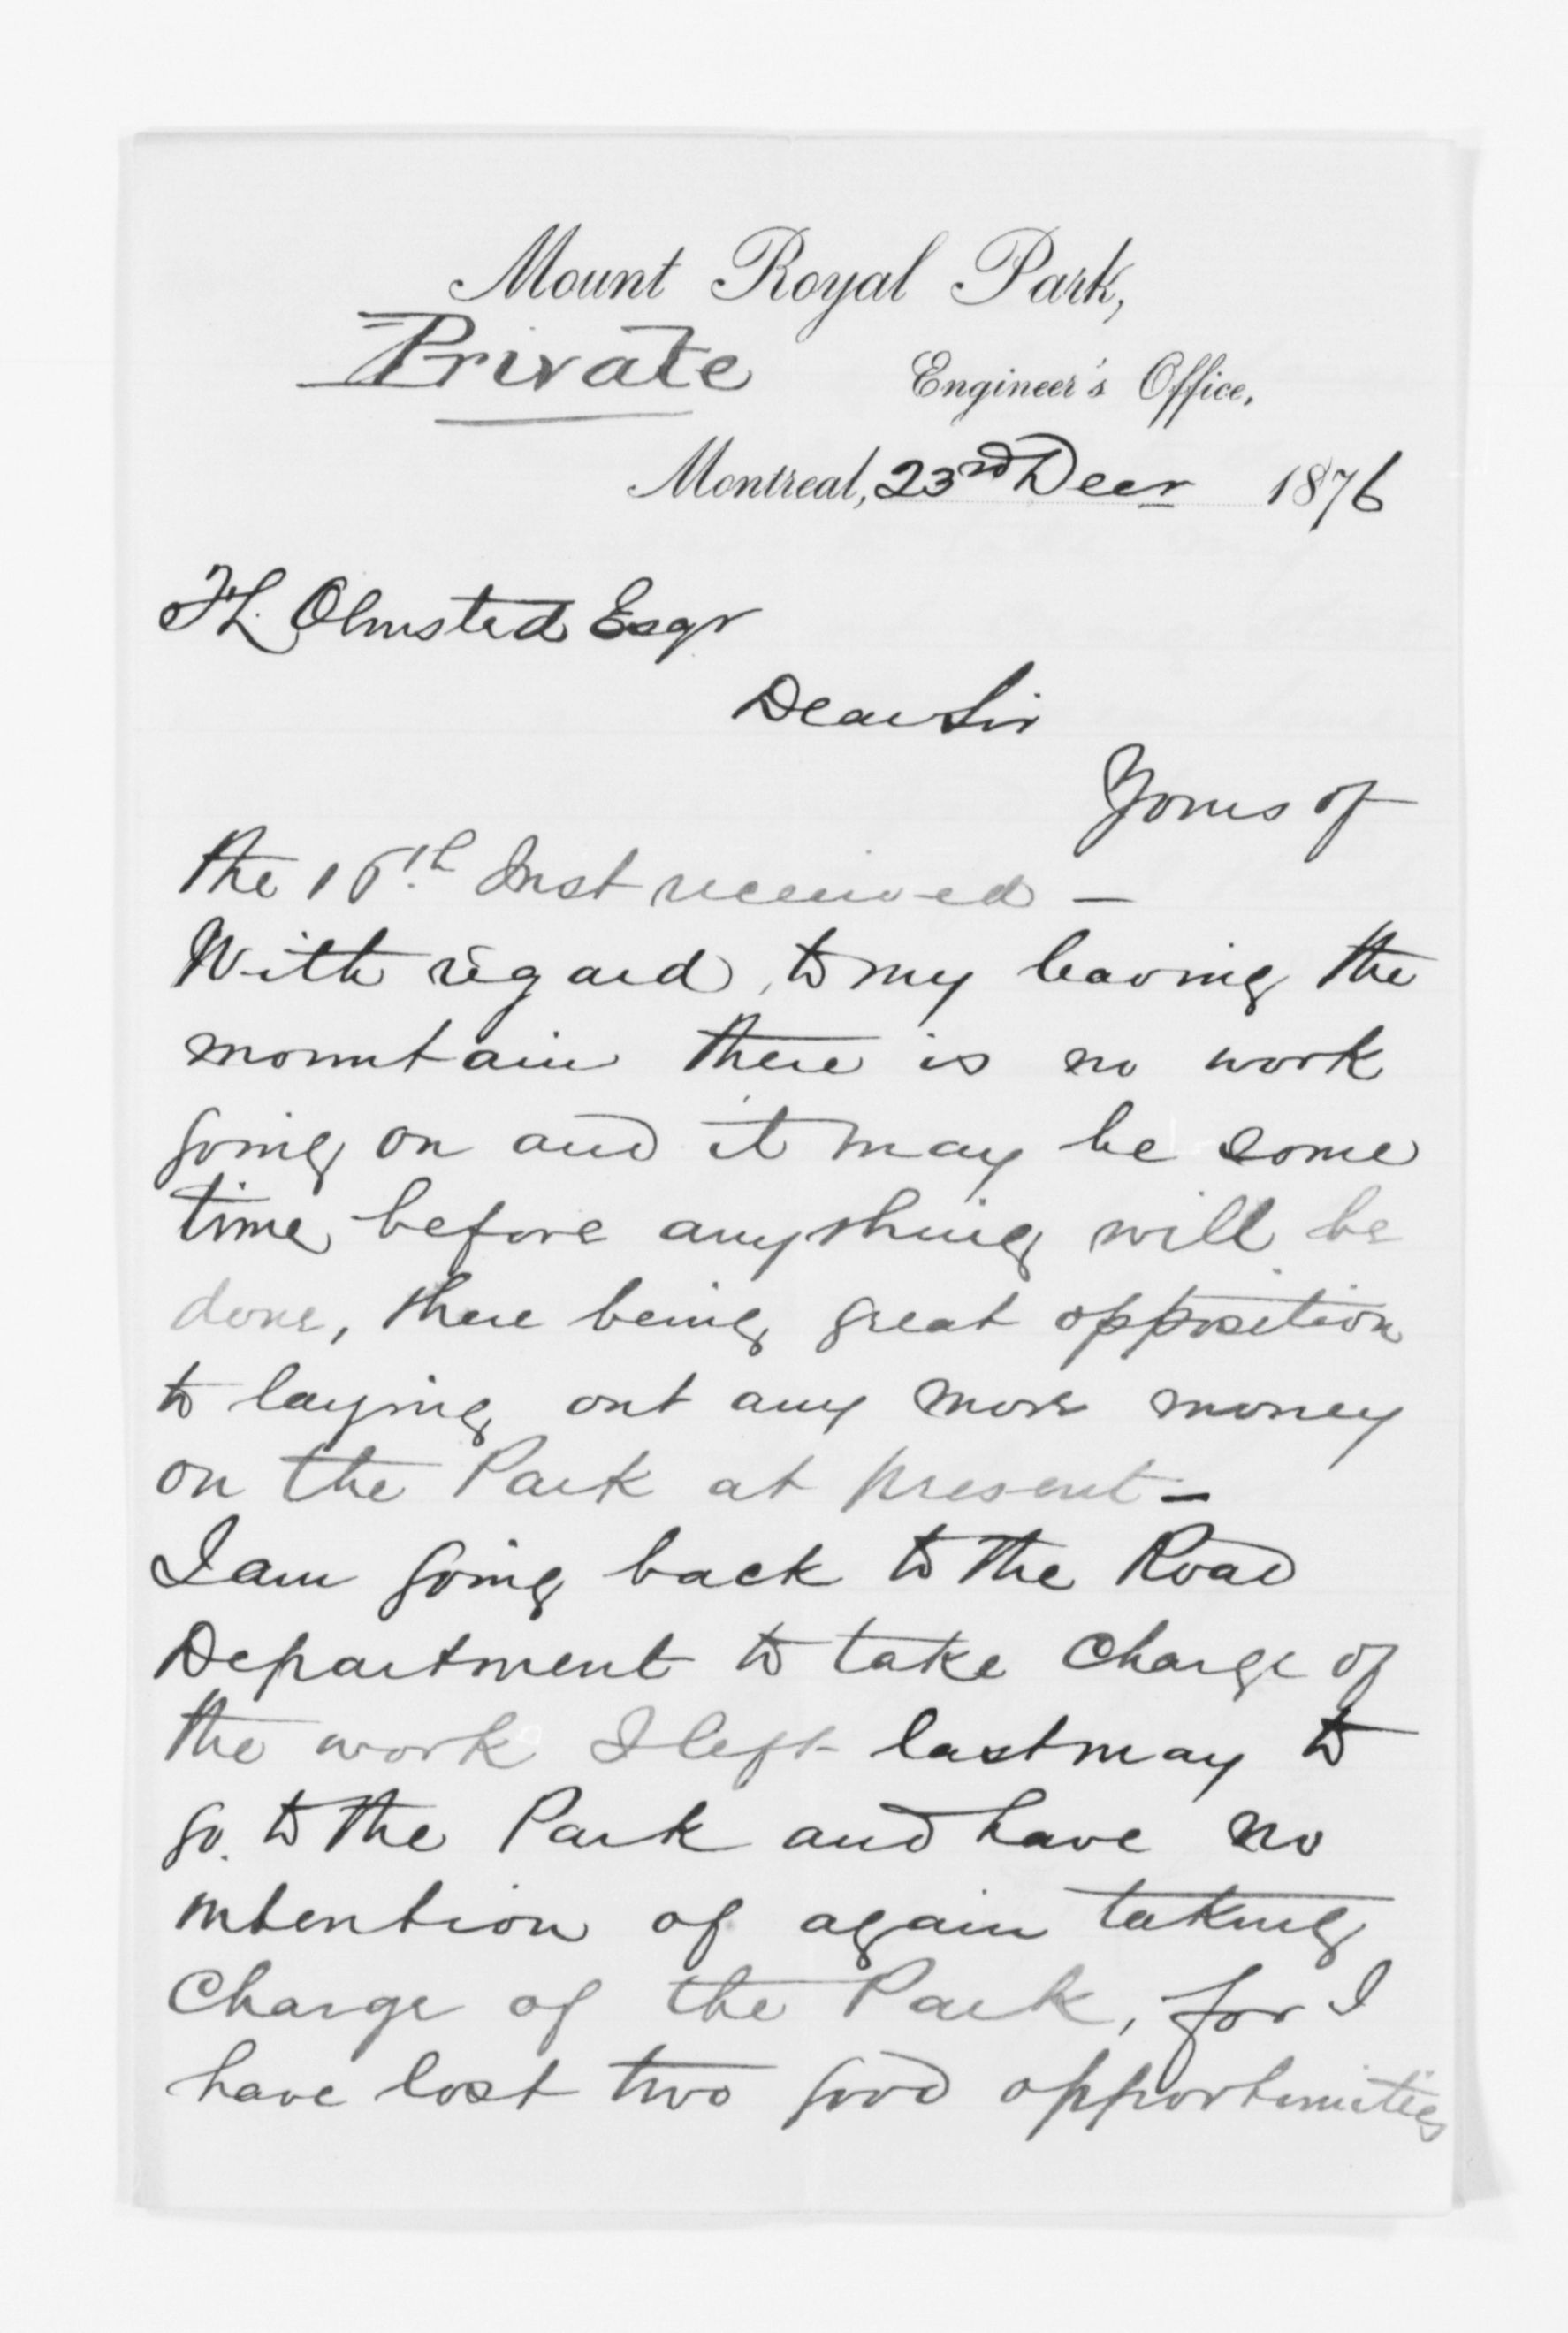 Mount Royal Park,
Private
Engineer's Office,
Montreal, 23rd Decr 1876
FL. Olmsted Esqr
Dear Sir
Yours of
the Inst received —
With regard to my leaving the
mountain there is no work
going on and it may be some
time before anything will be
done, there being great opposition
to laying out any more money
on the Park at present —
I am going back to the Road
Department to take charge of
the work I left last may to
go to the Park and have no
intention of again taking
charge of the Park, for I
have lost two good opportunities